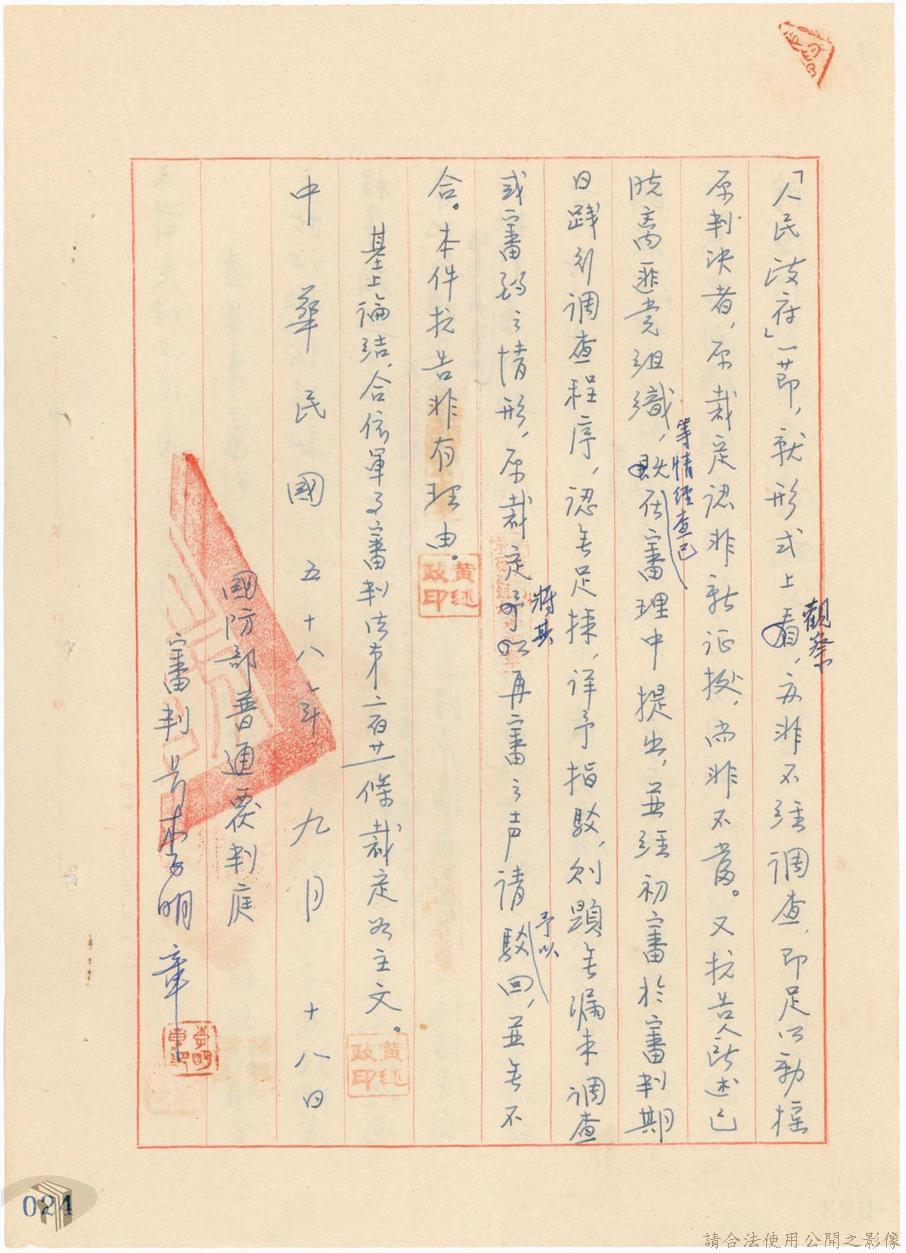 「人民政府」一節，就形式上觀察，亦非不经調查，即足以動摇
原判决者，原裁定認非新证據，尚非不當。又抗告人所述已
脱离匪党组織，等情经查已於審理中提出，並经初審於審判期
日踐行調查程序，認無足採，详予指駁，则顯無漏未調查
或審酌之情形，原裁定將其再審之声请予以駁回，並無不
合。本件抗告非有理由。
黃延政印
基上論结，合依軍事審判法第二百廿一條裁定如主文。
黃延政印
中華民國五十八年九月十八日
國防部普通覆判庭
審判長李明章
李明章印
024
請合法使用公開之影像